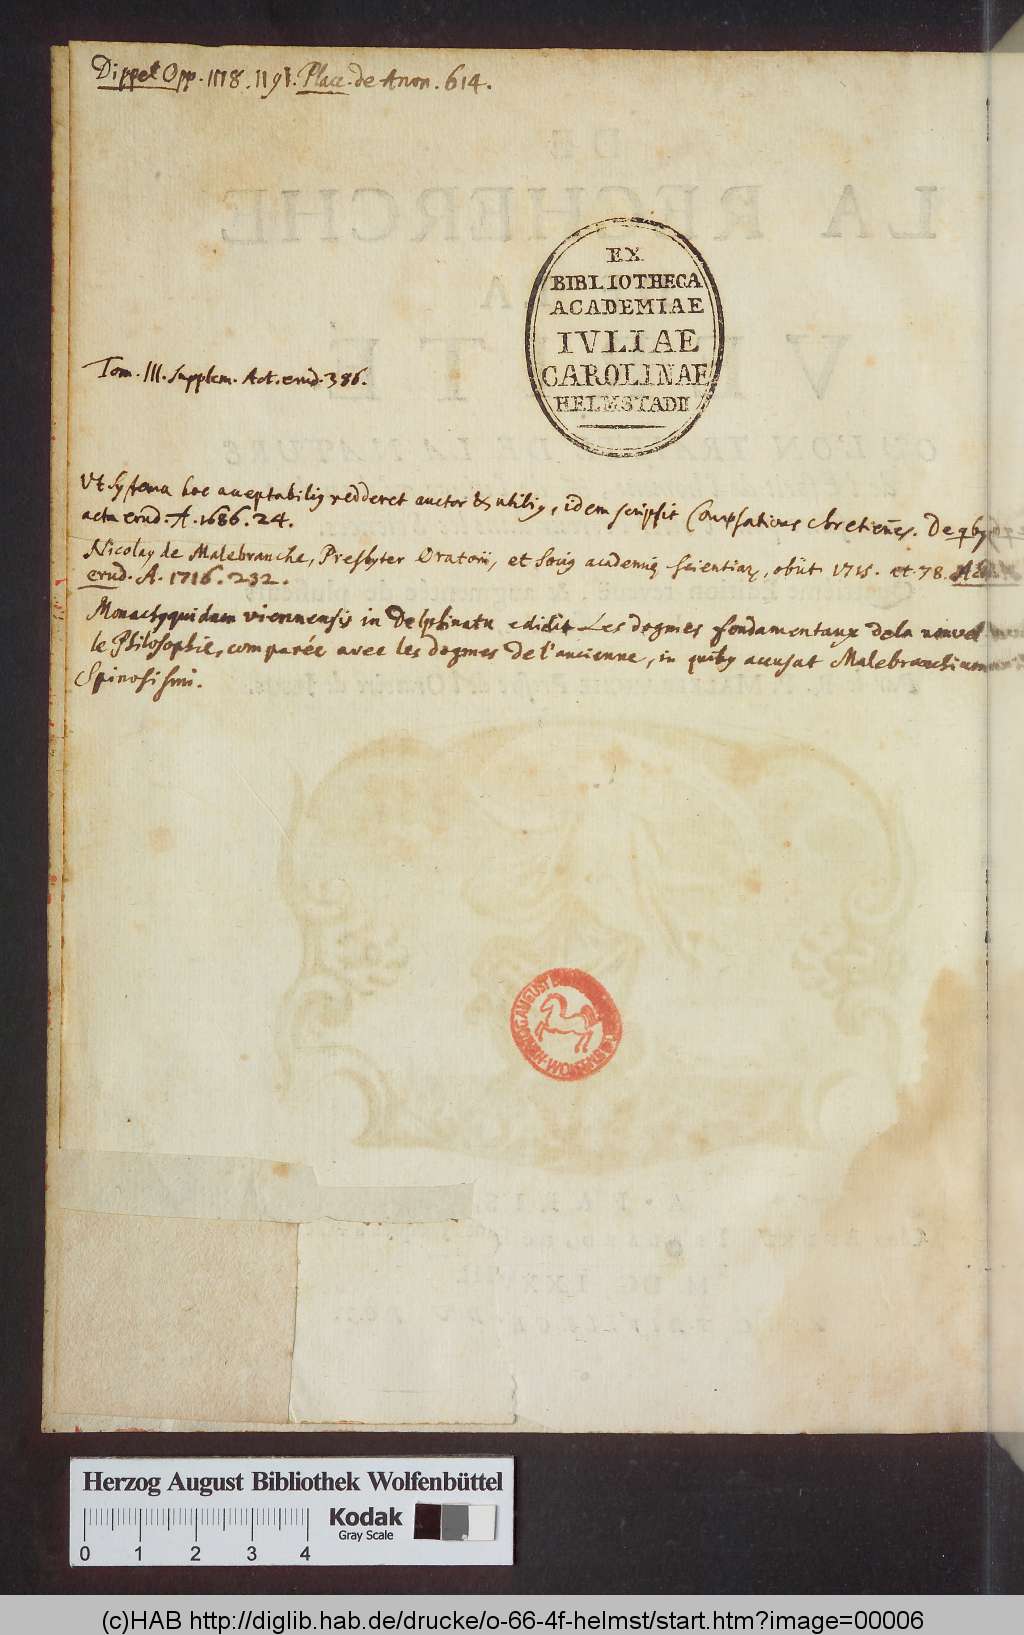 Dippel Opp. 1178. 1191. Place. de Anon. 614.
EX
BIBLIOTHECA
ACADEMIAE
IVLIAE
CAROLINAE
HELMSTADII
Tom. III. Supplem. Act. erud. 386.
Vt Systema hoc acceptabiliq redderet auctor & utiliq, idem scripsit Conversations chretienes. De qbq
acta erud. A. 1686. 24.
Nicolaq de Malebranche, Presbyter Oratorii, et Sociq academię scientiaꝝ, obiit 1715. et. 78.
erud. A. 1716. 232.
Monachq quidam viennensis in Delphinatu edidit Les dogmes fondamentaux de la nouvel
le Philosophie, comparée avec les dogmes de l'ancienne, in quibq accusat Malebranchium
Spinosismi.
HERZOG AUGUST BIBLIOTHEK WOLFENBÜTTEL
Herzog August Bibliothek Wolfenbüttel
Kodak
Gray Scale
0 1 2 3 4
(c)HAB http://diglib.hab.de/drucke/o-66-4f-helmst/start.htm?image=00006